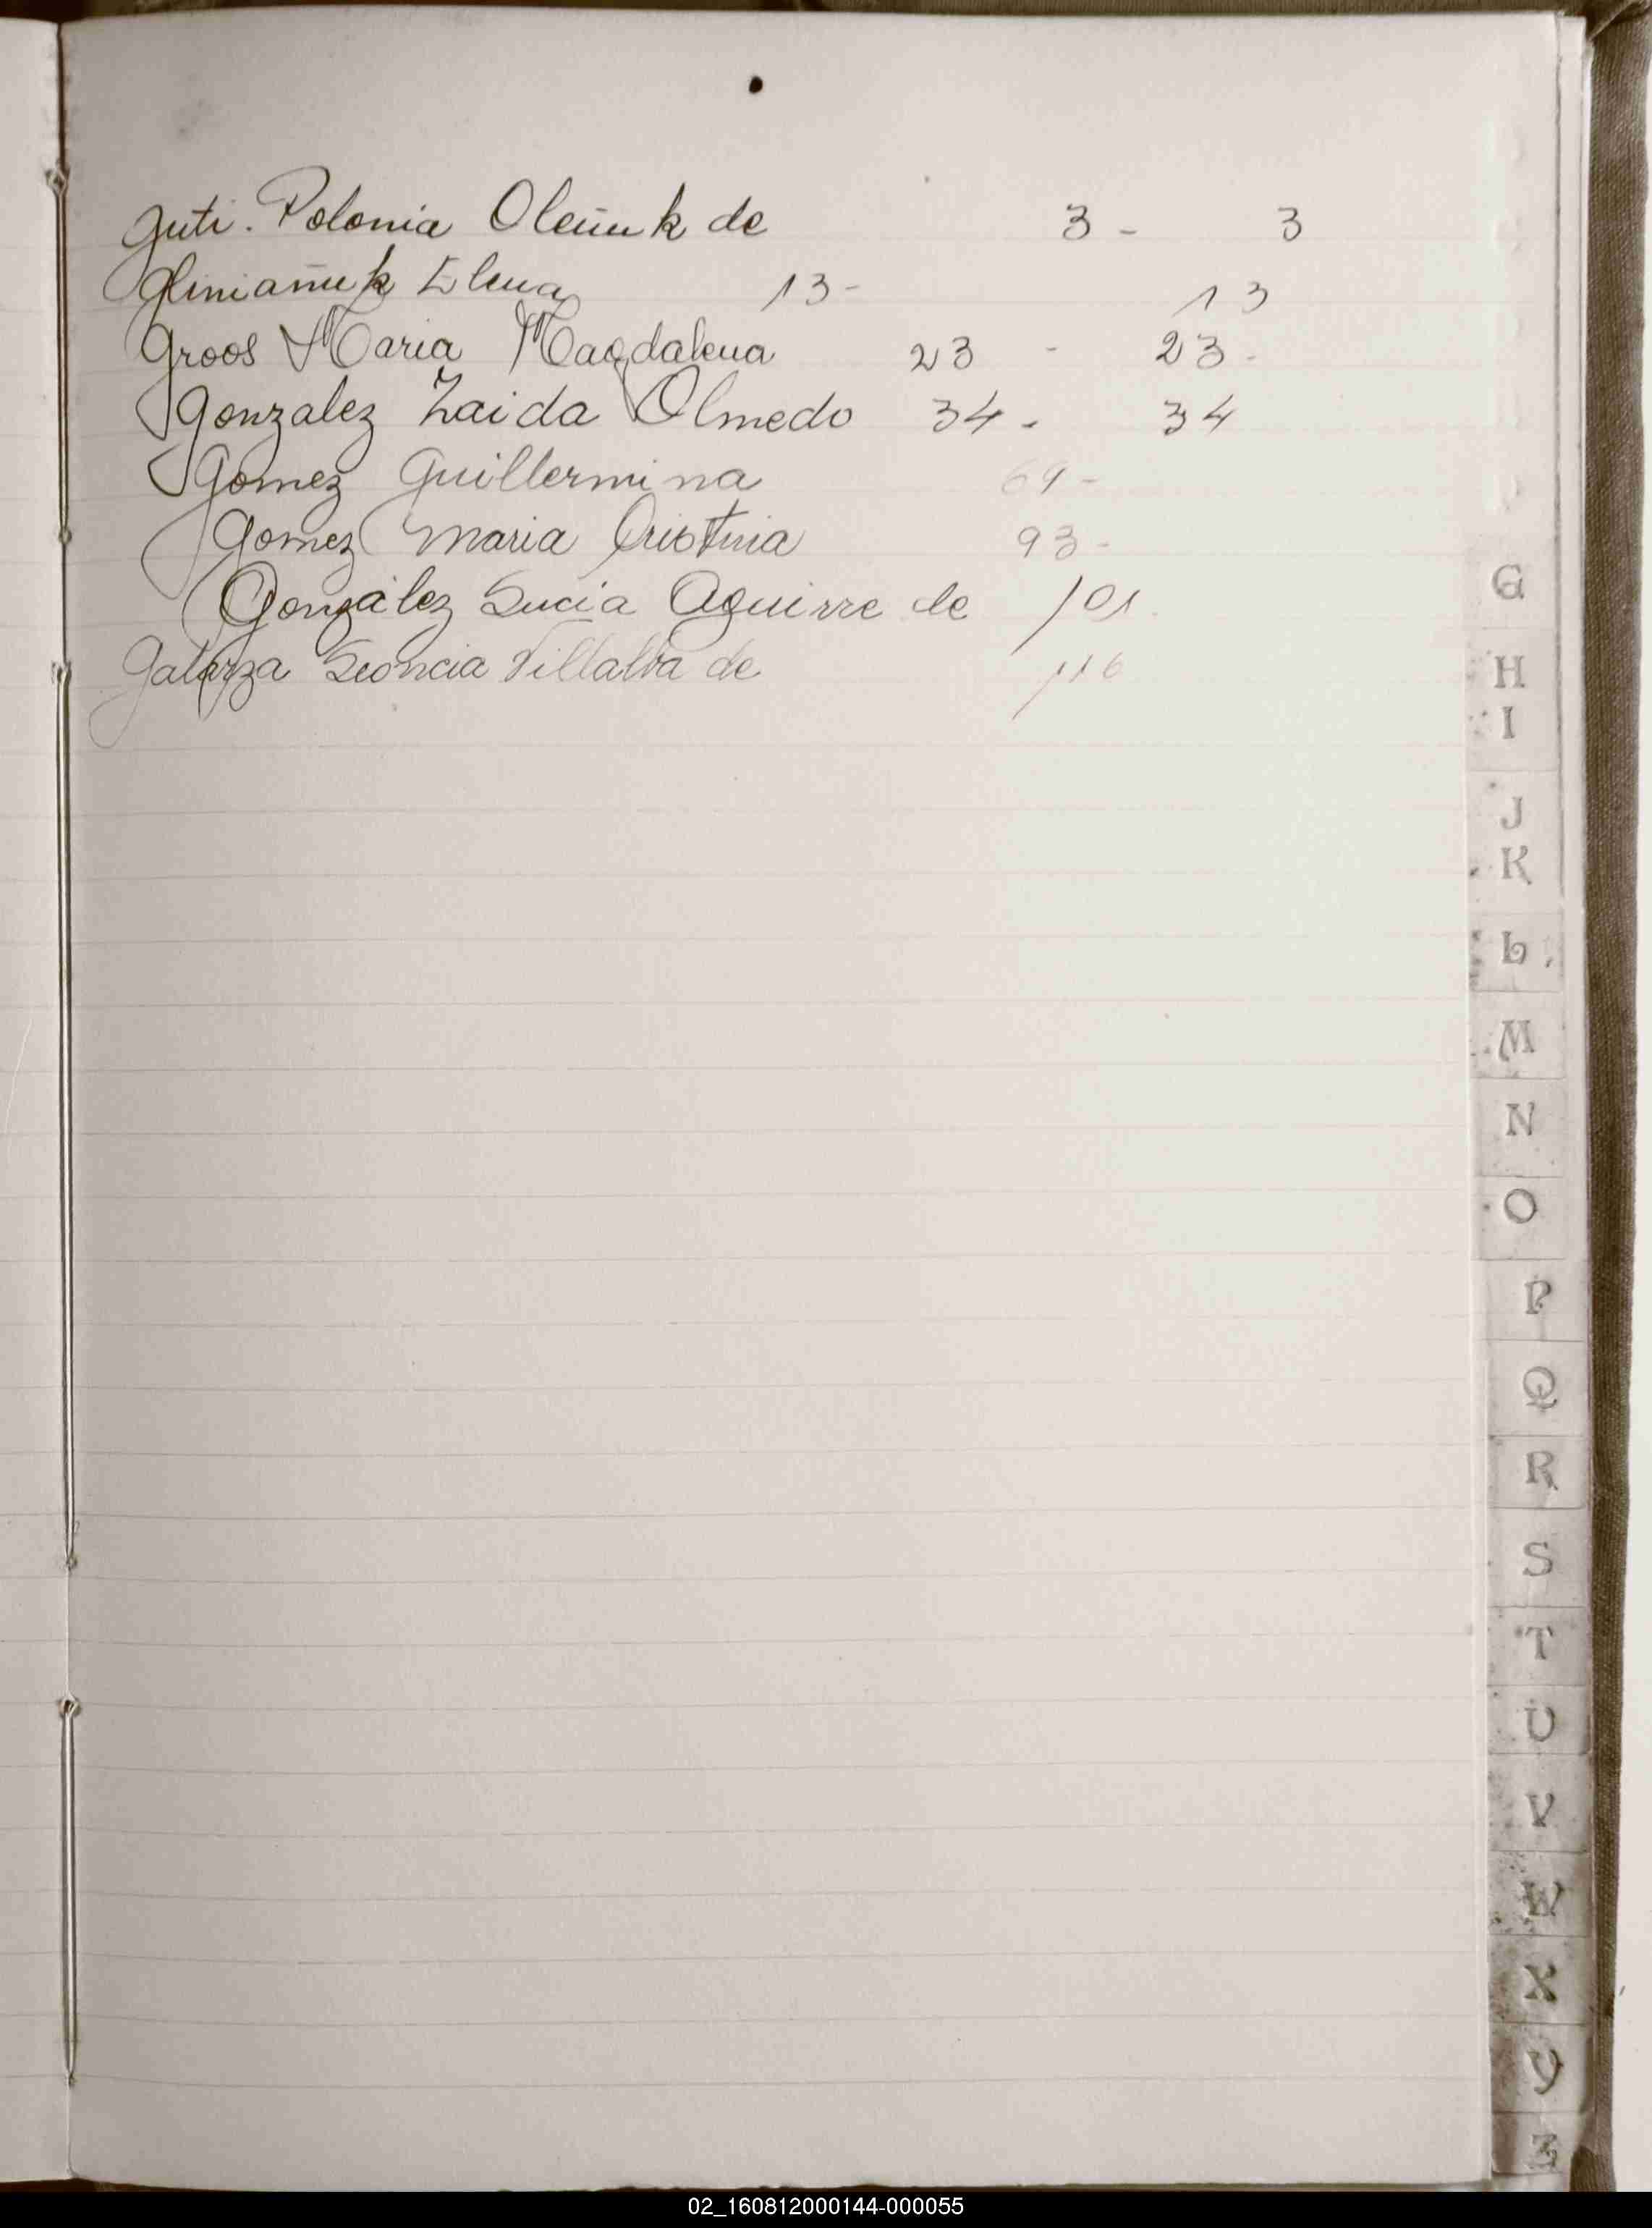 Guti. Polonia Oleñuk de 3 - 3
Gliniañuk Elena 13 - 13
Groos Maria Magdalena 23 - 23 -
Gonzalez Zaida Olmedo 34 - 34
Gomez Guillermina 69 -
Gomez Maria Cristina 93 -
González Lucia Aguirre de 101
Galarza Leoncia Villalba de 116
G
H
I
J
K
L
M
N
O
P
Q
R
S
T
U
V
W
X
Y
Z
02_160812000144-000055